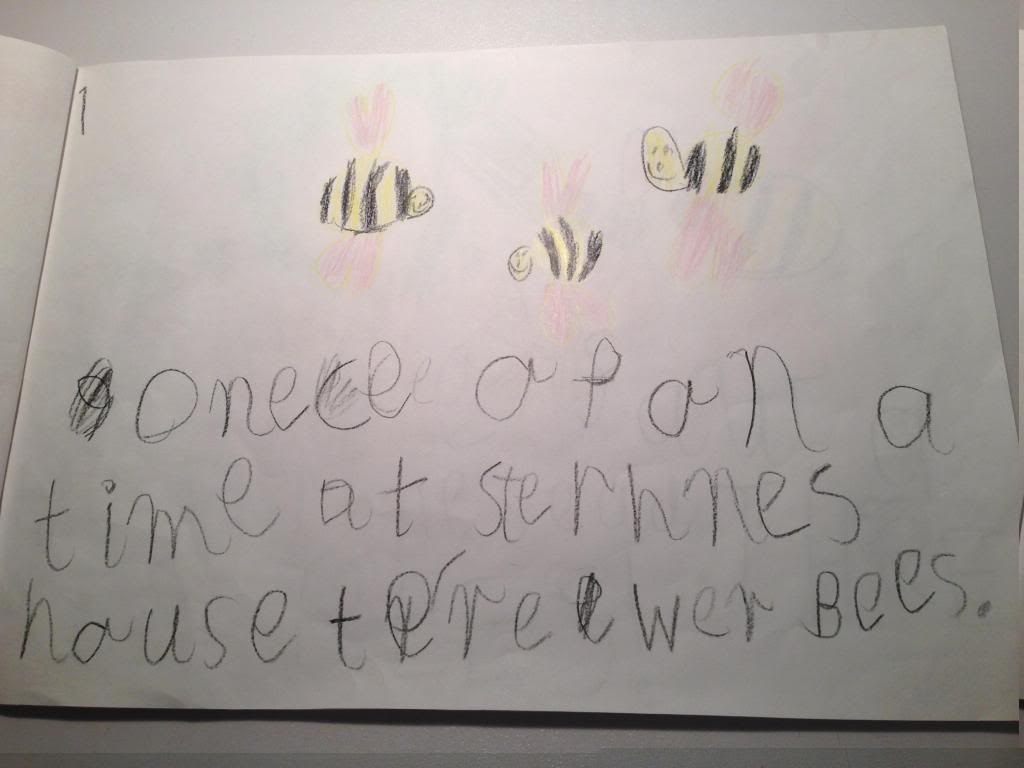 1
Onece apan a
time at sterhnes
hause tere wer Bees.